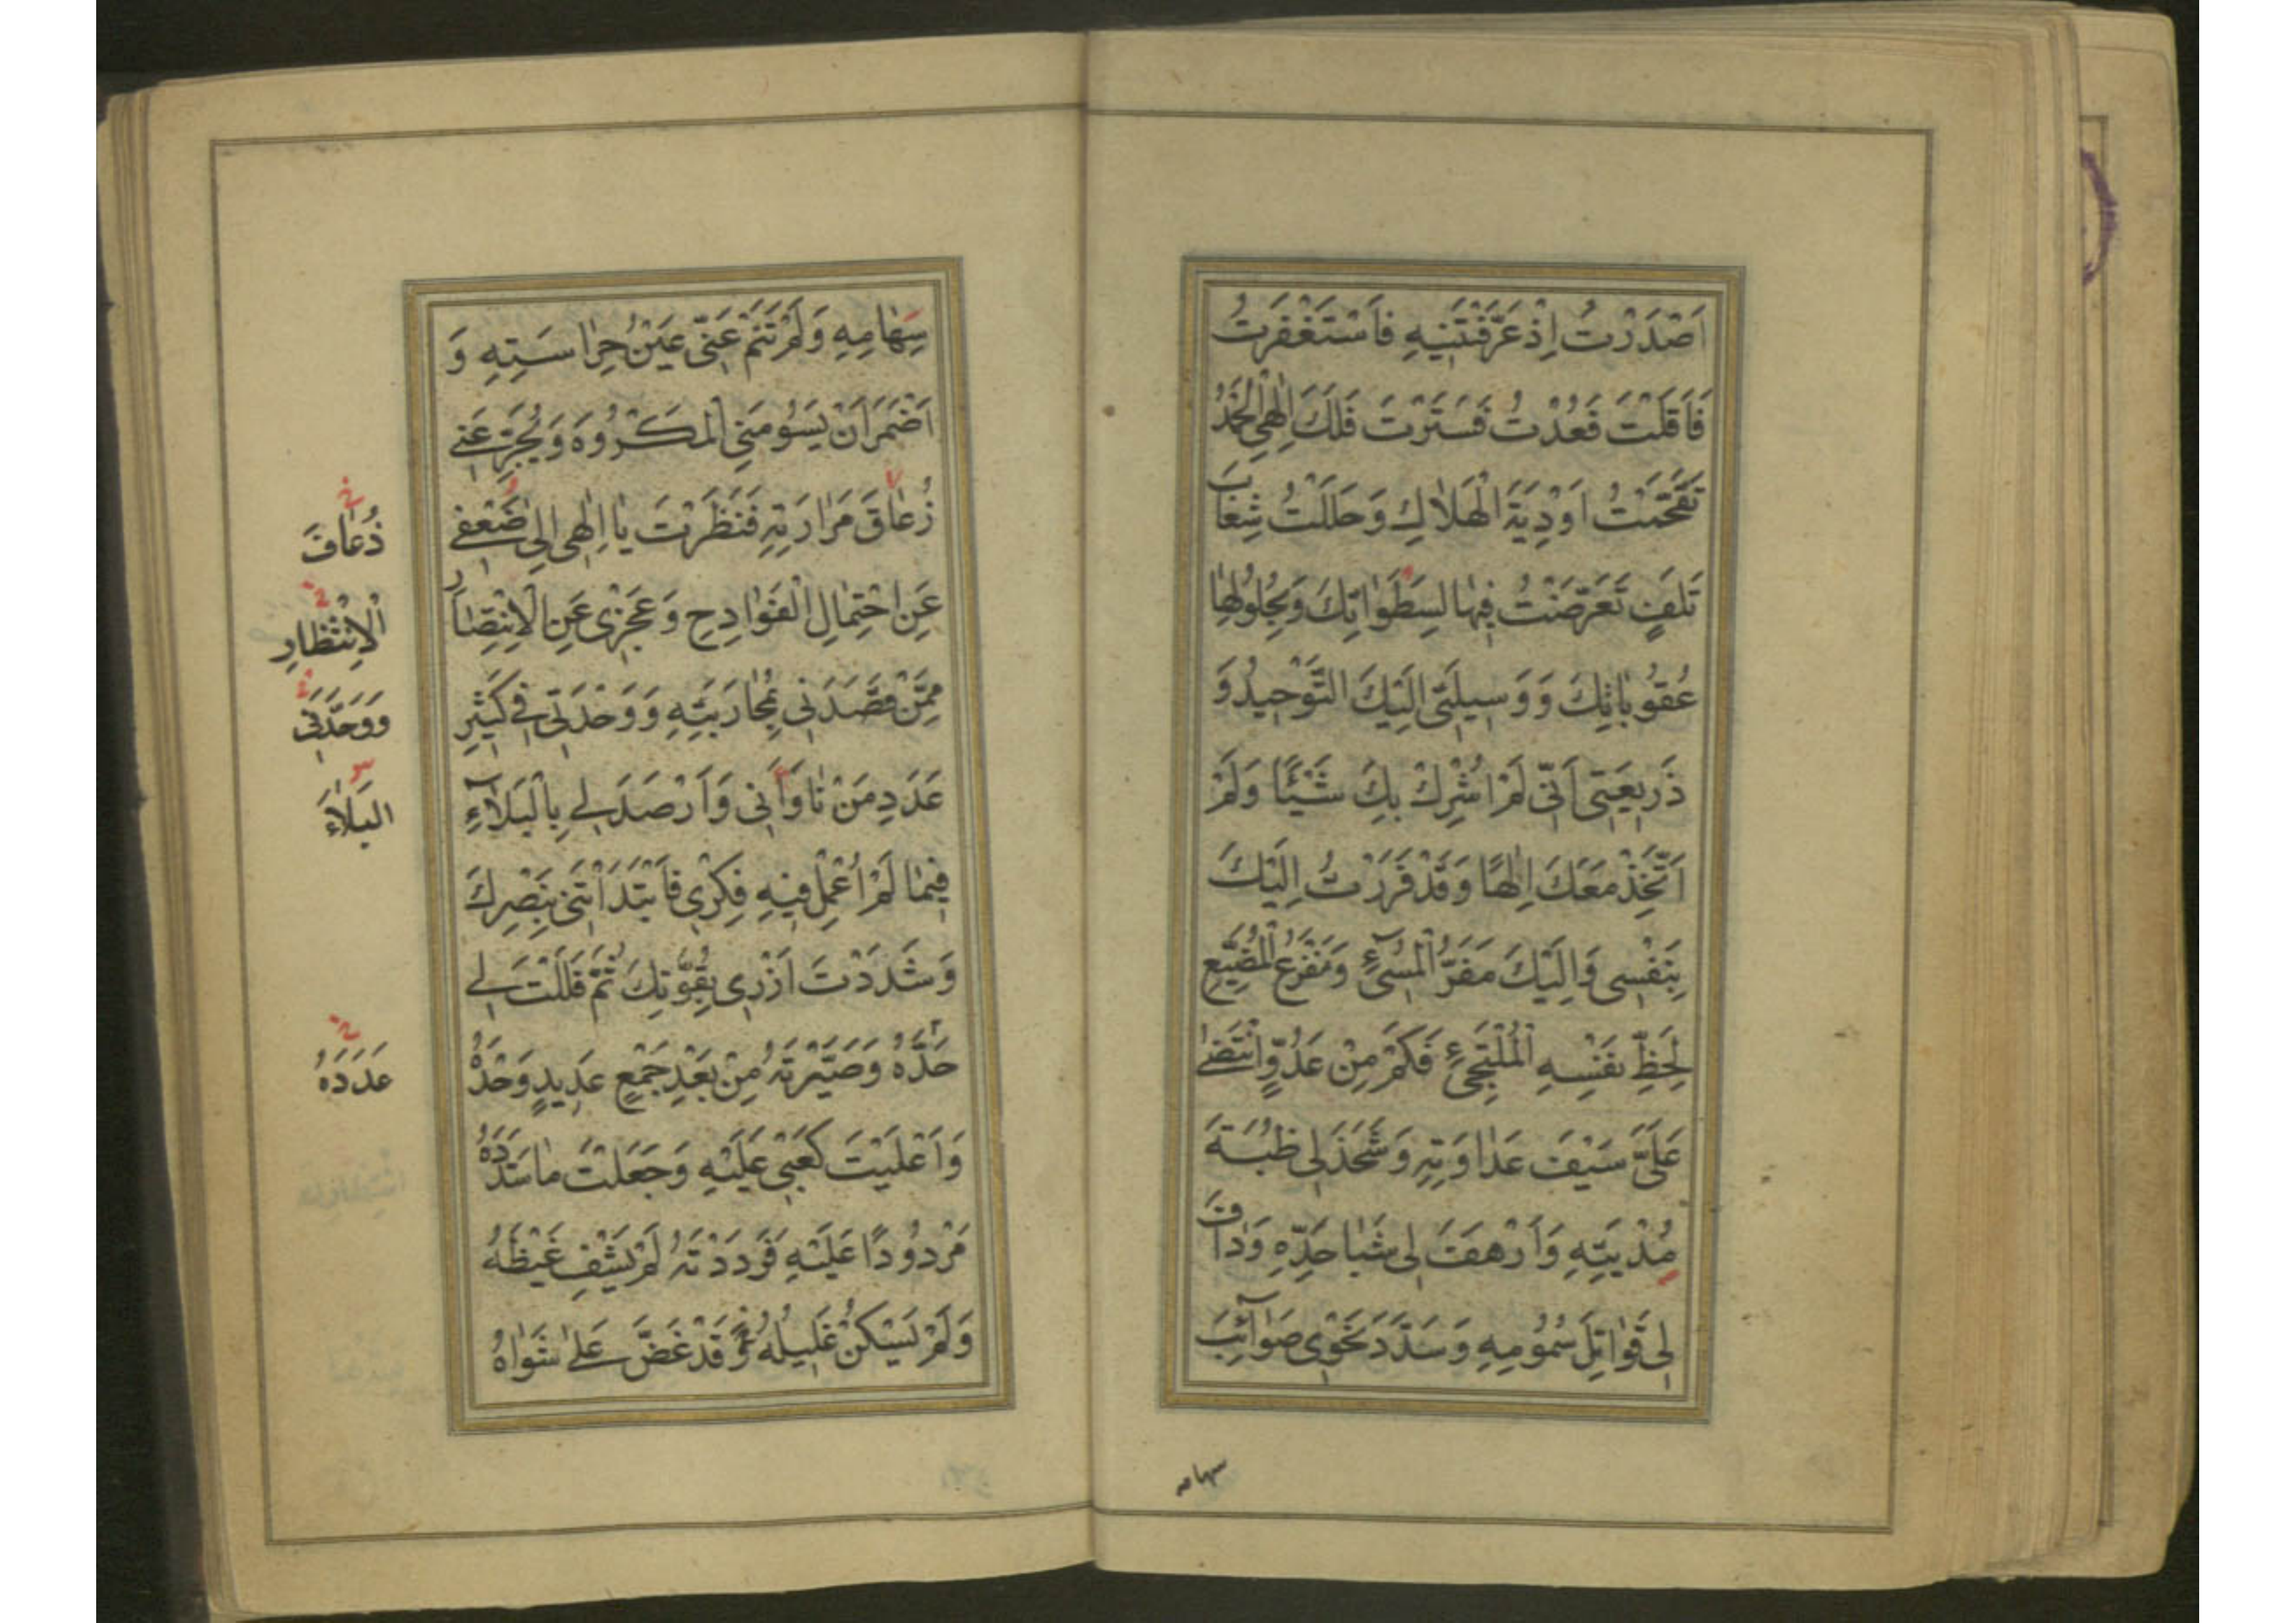 اَصْدَرْتُ اِذْ عَرَّفْتَنِيهِ فَاَسْتَغْفَرْتُ
فَاَقَلْتَ فَعُدْتُ فَسَتَرْتَ فَلَكَ اِلٰهِي الْحَمْدُ
تَقَحَّمْتُ اَوْدِيَةَ الْهَلَاكِ وَحَلَلْتُ شِعَابَ
تَلَفٍ تَعَرَّضْتُ فِيهَا لِسَطَوَاتِكَ وَبِحُلُولِهَا
عُقُوبَاتِكَ وَوَسِيلَتِي اِلَيْكَ التَّوْحِيدُ وَ
ذَرِيعَتِي اَنِّي لَمْ اُشْرِكْ بِكَ شَيْئًا وَلَمْ
اَتَّخِذْ مَعَكَ اِلٰهًا وَقَدْ فَرَرْتُ اِلَيْكَ
بِنَفْسِي وَاِلَيْكَ مَفَرُّ الْمُسِيءِ وَمَفْزَعُ الْمُضَيِّعِ
لِحَظِّ نَفْسِهِ الْمُلْتَجِئِ فَكَمْ مِنْ عَدُوٍّ انْتَضٰى
عَلَيَّ سَيْفَ عَدَاوَتِهِ وَشَحَذَ لِي ظُبَةَ
مُدْيَتِهِ وَاَرْهَفَ لِي شَبَا حَدِّهِ وَدَافَ
لِي قَوَاتِلَ سُمُومِهِ وَسَدَّدَ نَحْوِي صَوَآئِبَ
سهامه
سِهَامِهِ وَلَمْ تَنَمْ عَنِّي عَيْنُ حِرَاسَتِهِ وَ
اَضْمَرَ اَنْ يَسُومَنِي الْمَكْرُوهَ وَيُجَرِّعَنِي
زُعَاقَ مَرَارَتِهِ فَنَظَرْتَ يَا اِلٰهِي اِلٰى ضَعْفِي
عَنِ احْتِمَالِ الْفَوَادِحِ وَعَجْزِي عَنِ الْاِنْتِصَارِ
مِمَّنْ قَصَدَنِي بِمُحَارَبَتِهِ وَوَحْدَتِي فِي كَثِيرِ
عَدَدِ مَنْ نَاوَاَنِي وَاَرْصَدَ لِي بِالْبَلَآءِ
فِيمَا لَمْ اُعْمِلْ فِيهِ فِكْرِي فَابْتَدَاْتَنِي بِنَصْرِكَ
وَشَدَدْتَ اَزْرِي بِقُوَّتِكَ ثُمَّ فَلَلْتَ لِي
حَدَّهُ وَصَيَّرْتَهُ مِنْ بَعْدِ جَمْعٍ عَدِيدٍ وَحْدَهُ
وَاَعْلَيْتَ كَعْبِي عَلَيْهِ وَجَعَلْتَ مَا سَدَّدَهُ
مَرْدُودًا عَلَيْهِ فَرَدَدْتَهُ لَمْ يَشْفِ غَيْظَهُ
وَلَمْ يَسْكُنْ غَلِيلُهُ وَقَدْ عَضَّ عَلٰى شَوَاهُ
ذُعَافَ
الْاِنْتِظَارِ
وَوَحْدَتِي
البَلَاءَ
عَدَدَهُ